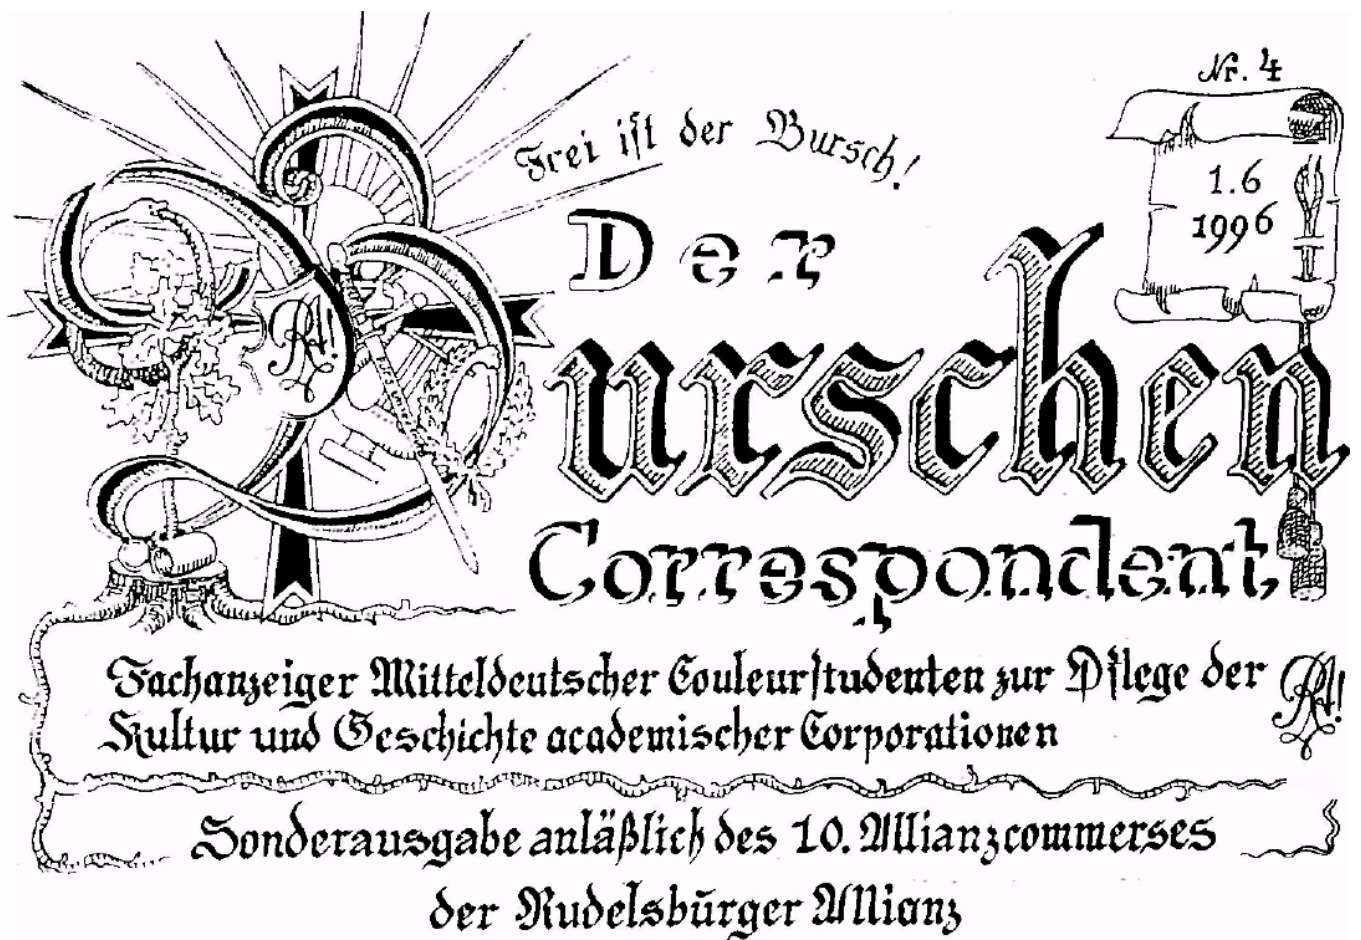 Nr. 4
1.6
1996
Frei ist der Bursch!
Der
Burschen
Correspondent
RA!
Fachanzeiger Mitteldeutscher Couleurstudenten zur Pflege der
RA!
Kultur und Geschichte academischer Corporationen
Sonderausgabe anläßlich des 10. Allianzcommerses
der Rudelsburger Allianz